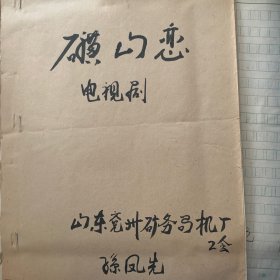 礦山恋
电视剧
山东兖州矿务局机厂
工会
孫凤先